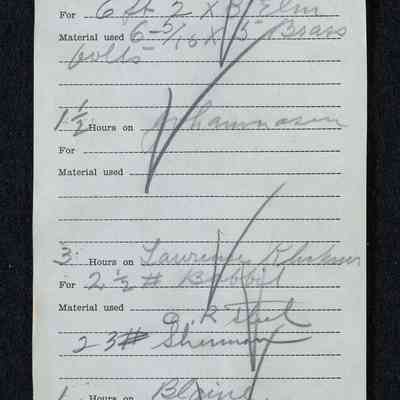 For 6 ft 2 X 3 Elm
Material used 6-5/16 X 5" Brass
bolts
1 1/2 Hours on Johannasen
For
Material used
3 Hours on Lawrence
For 2 1/2 # Babbit
Material used
2 3# Sherman
1 Hours on Blaine